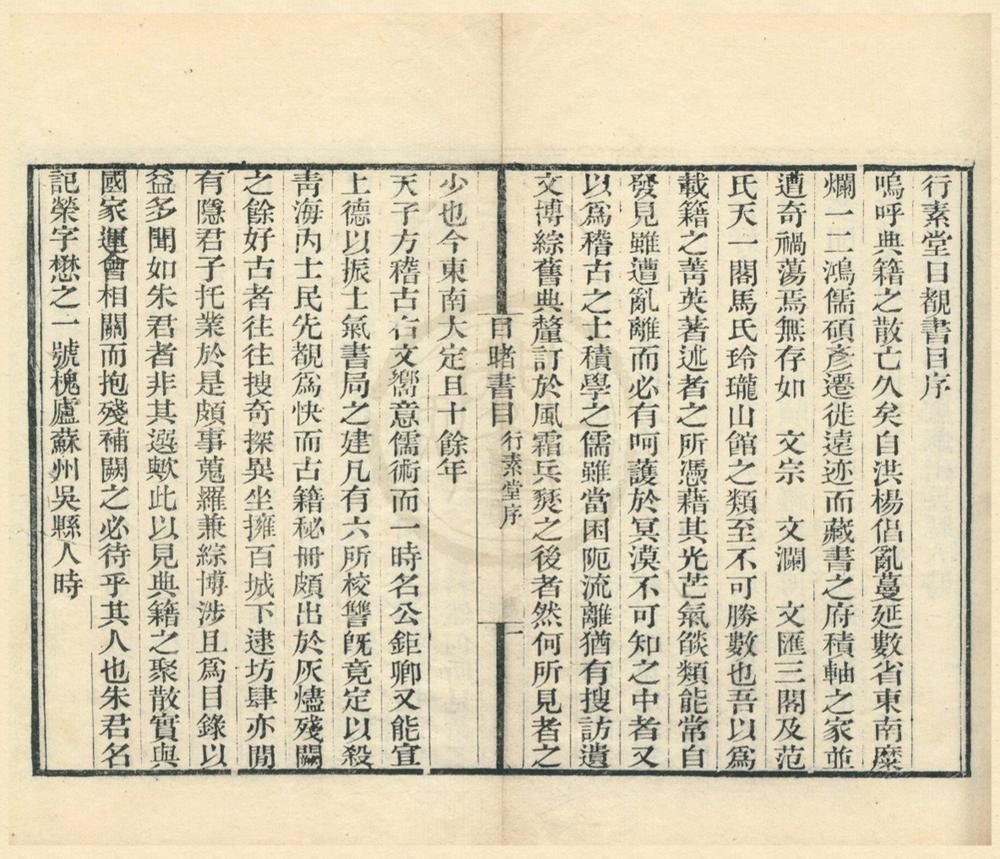 行素堂目覩書目序
嗚呼典籍之散亡久矣自洪楊倡亂蔓延數省東南糜
爛一二鴻儒碩彥遷徙遠迹而藏書之府積軸之家並
遭奇禍蕩焉無存如　文宗　文瀾　文匯三閣及范
氏天一閣馬氏玲瓏山館之類至不可勝數也吾以爲
載籍之菁英著述者之所憑藉其光芒氣燄類能常自
發見雖遭亂離而必有呵護於冥漠不可知之中者又
以爲稽古之士積學之儒雖當困阨流離猶有搜訪遺
文博綜舊典釐訂於風霜兵燹之後者然何所見者之
目睹書目　行素堂序　一
少也今東南大定且十餘年
天子方稽古右文嚮意儒術而一時名公鉅卿又能宣
上德以振士氣書局之建凡有六所校讐旣竟定以殺
靑海內士民先覩爲快而古籍秘冊頗出於灰燼殘闕
之餘好古者往往搜奇探異坐擁百城下逮坊肆亦閒
有隱君子托業於是頗事蒐羅兼綜博涉且爲目錄以
益多聞如朱君者非其選歟此以見典籍之聚散實與
國家運會相關而抱殘補闕之必待乎其人也朱君名
記榮字懋之一號槐廬蘇州吳縣人時